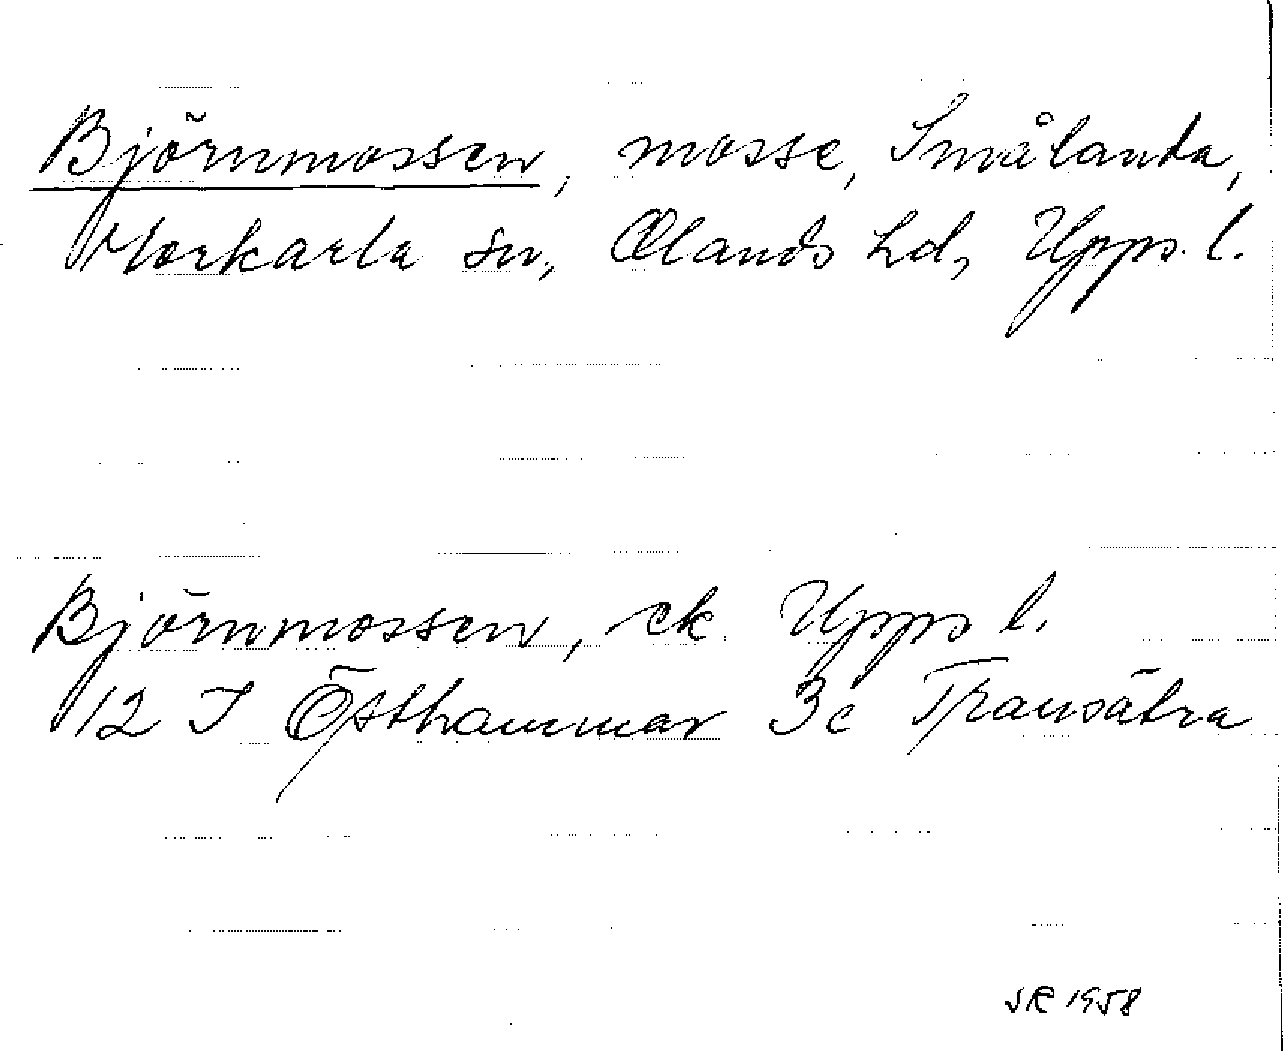 Björnmossen, mosse, Smålanda,
Morkarla sn, Olands hd, Upps. l.
Björnmossen, ek. Upps l.
12 I Östhammar 3c Transätra
SR 1958